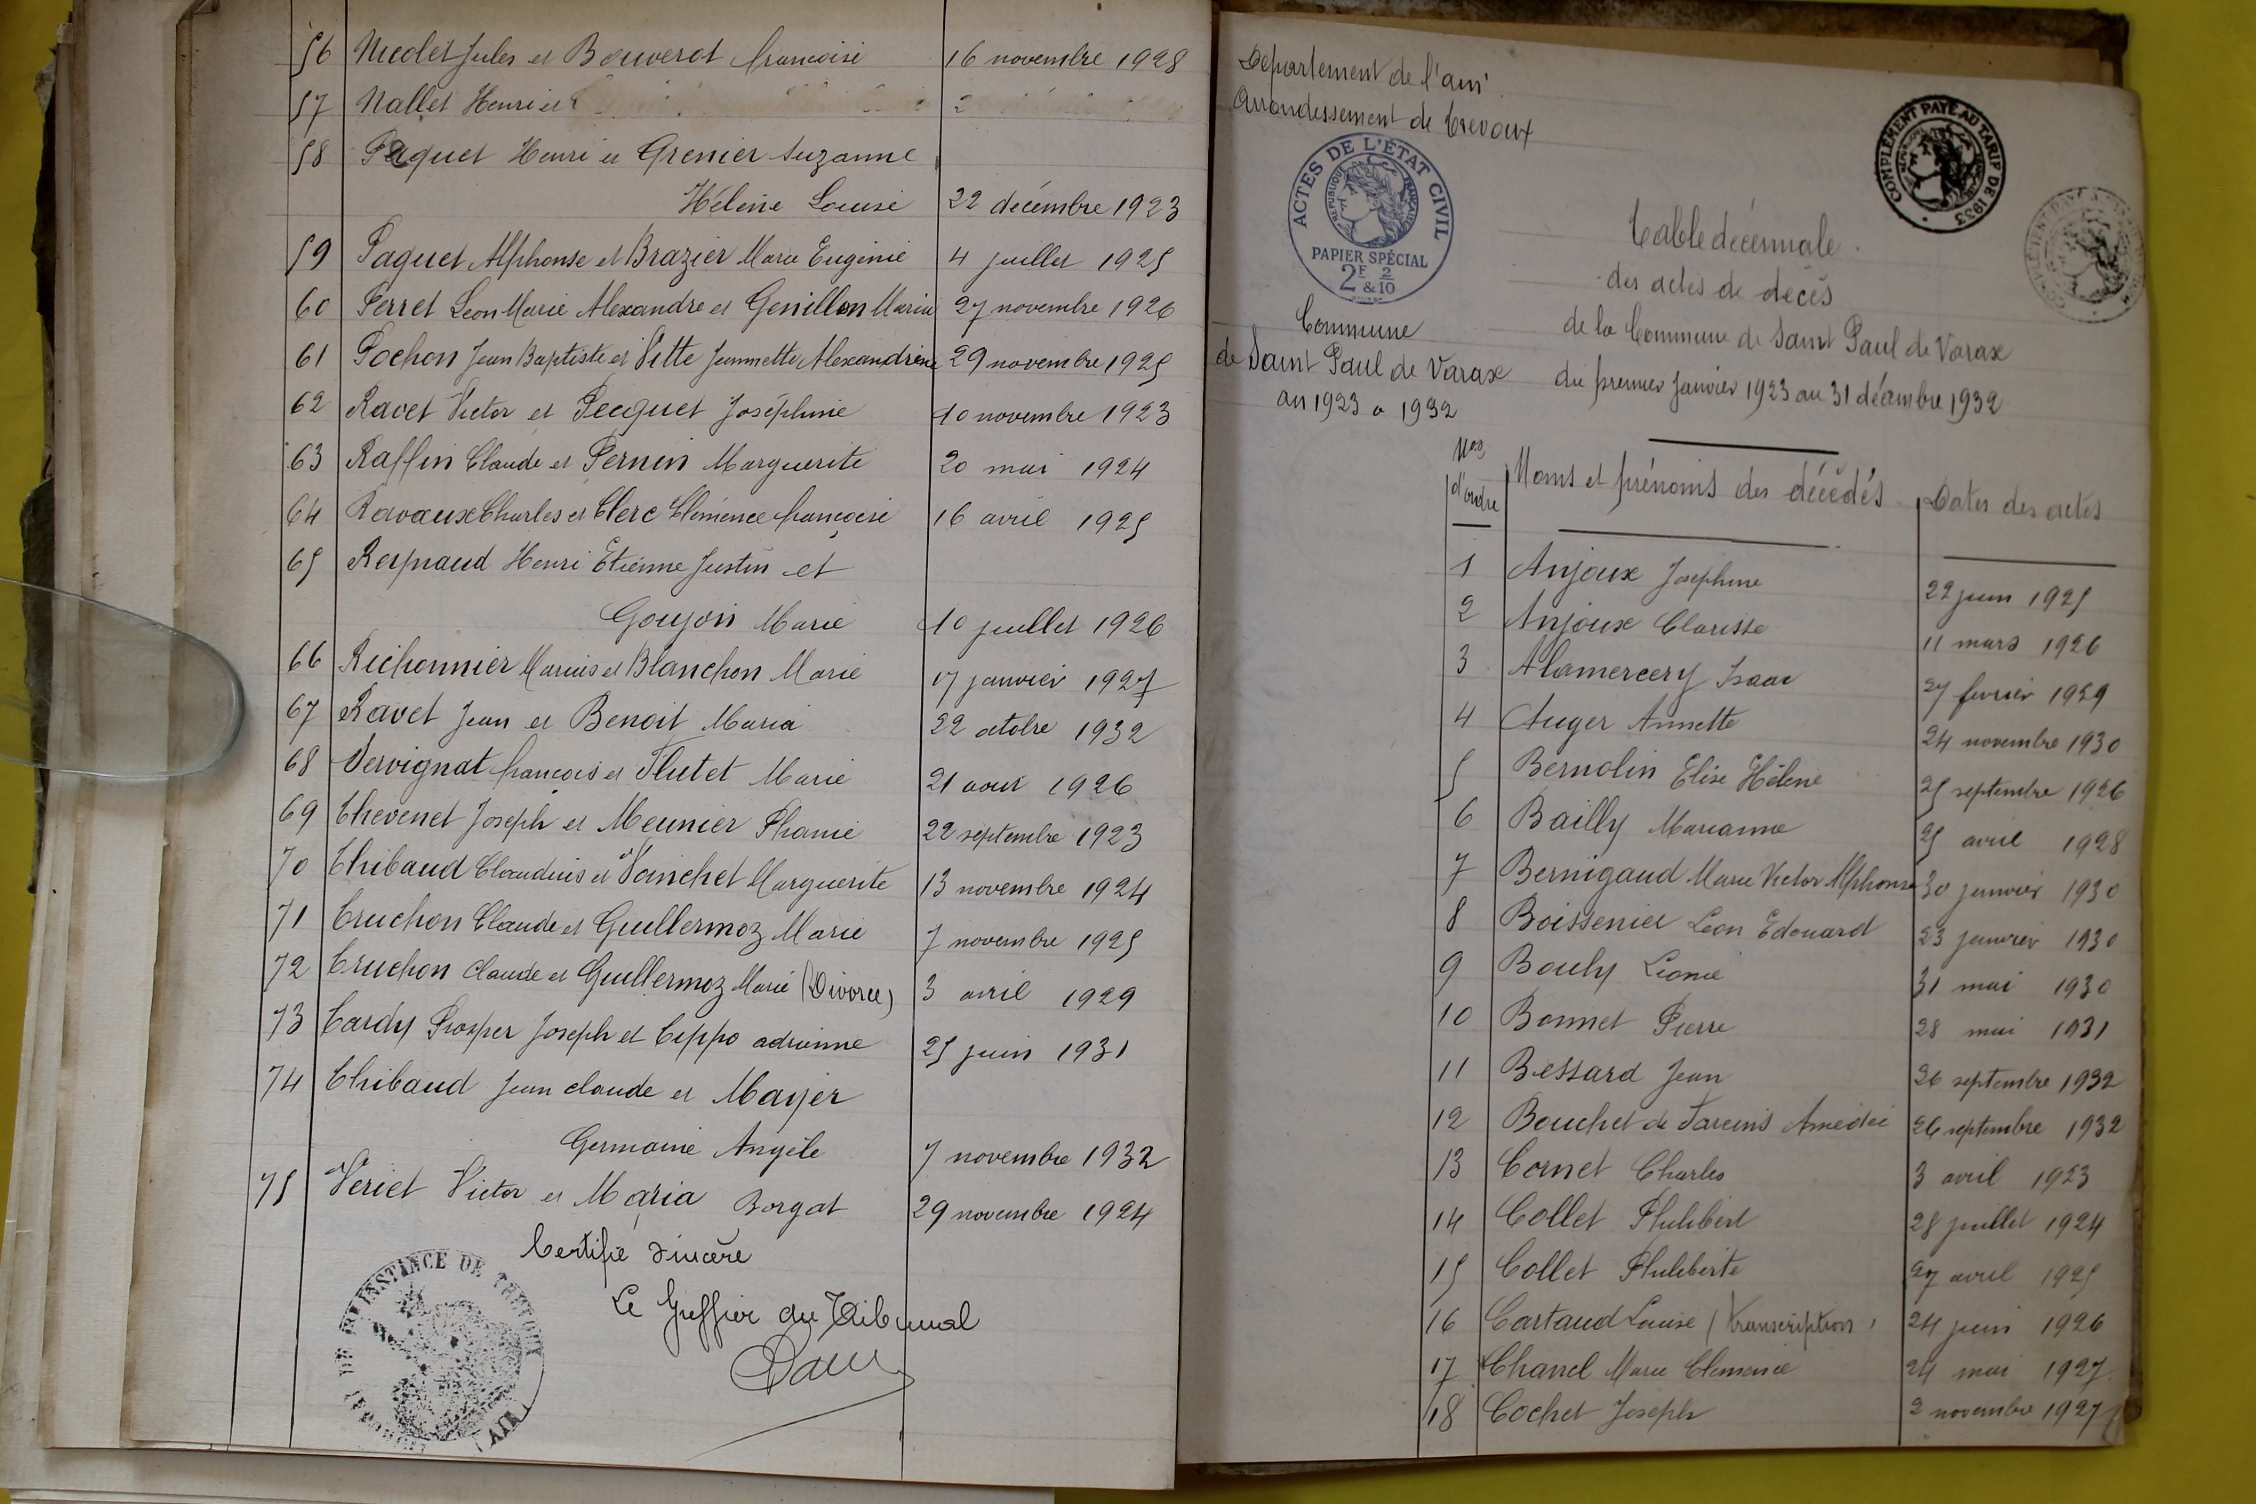 56 Nicolet Jules et Bouverot françoise 16 novembre 1928
57 Nallet Henri et
58 Paquet Henri et Grenier Suzanne
Hélène Louise 22 décembre 1923
59 Paquet Alphonse et Brazier Marie Eugénie 4 juillet 1925
60 Perret Léon Marie Alexandre et Genillon Maria 27 novembre 1926
61 Pochon Jean Baptiste et Vitte Jeannette Alexandrine 29 novembre 1925
62 Ravet Victor et Pecquet Joséphine 10 novembre 1923
63 Raffin Claude et Pernin Marguerite 20 mai 1924
64 Ravoux Charles et Clerc Clémence françoise 16 avril 1925
65 Reynaud Henri Etienne Justin et
Goujon Marie 10 juillet 1926
66 Richonnier Marius et Blanchon Marie 17 janvier 1927
67 Ravet Jean et Benoit Maria 22 octobre 1932
68 Servignat françois et Flutet Marie 21 aout 1926
69 Thevenet Joseph et Meunier Phanie 22 septembre 1923
70 Thibaud Claudius et Vainchet Marguerite 13 novembre 1924
71 Truchon Claude et Guillermoz Marie 7 novembre 1925
72 Truchon Claude et Guillermoz Marie (Divorce) 3 avril 1929
73 Tardy Prosper Joseph et Ceppo adrienne 25 juin 1931
74 Thibaud Jean claude et Mayer
Germaine Angèle 7 novembre 1932
75 Veriet Victor et Maria Borgat 29 novembre 1924
Certifié sincère
Le Greffier du Tribunal
INSTANCE DE TREVOUX
(AIN)
Departement de l'ain
Arrondissement de Trevoux
ACTES DE L'ÉTAT CIVIL
REPUBLIQUE FRANÇAISE
PAPIER SPÉCIAL
2F & 2/10
COMPLÉMENT PAYÉ AU TARIF DE 1933
Commune
de Saint Paul de Varax
an 1923 a 1932
Table décennale
des actes de décès
de la Commune de Saint Paul de Varax
du premier Janvier 1923 au 31 décembre 1932
Nos d'ordre Noms et prénoms des décédés Dates des actes
1 Anjoux Joséphine 22 juin 1925
2 Anjoux Clarisse 11 mars 1926
3 Alamercery Isaac 27 fevrier 1929
4 Auger Annette 24 novembre 1930
5 Bernolin Elise Hélène 25 septembre 1926
6 Bailly Marianne 25 avril 1928
7 Bernigaud Marie Victor Alphonse 30 janvier 1930
8 Boissenier Léon Edouard 23 janvier 1930
9 Bouly Léonie 31 mai 1930
10 Bonnet Pierre 28 mai 1931
11 Bessard Jean 26 septembre 1932
12 Bouchet de Fareins Amédée 26 septembre 1932
13 Cornet Charles 3 avril 1923
14 Collet Philibert 28 juillet 1924
15 Collet Philiberte 27 avril 1925
16 Cartaud Louise (transcription) 24 juin 1926
17 Chanel Marie Clemence 24 mai 1927
18 Cochet Joseph 2 novembre 1927